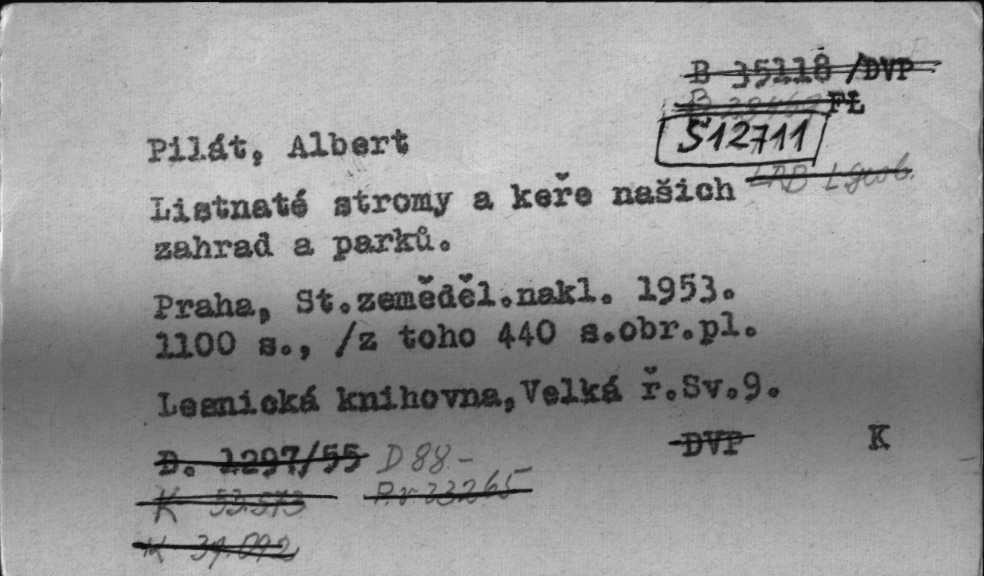 B 35118 /DVP
FŁ
S12711
Pilát, Albert
Listnaté stromy a keře našich
zahrad a parků.
Praha, St.zeměděl.nakl. 1953.
1100 s., /z toho 440 s.obr.pl.
Lesnická knihovna,Velká ř.Sv.9.
D. 1297/55 D 88- DVP K
K 53.573 Pr 23265
K 39.092